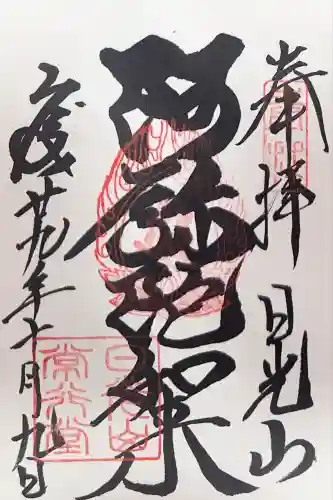 奉拝 日光山
阿弥陀如来
平成廿九年十月九日
日光山
常行堂